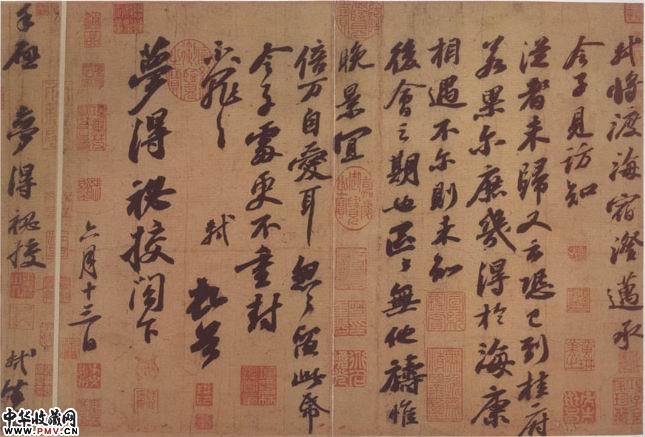 軾將渡海宿澄邁承
令子見訪知
從者未歸又云恐已到桂府
若果爾庶幾得於海康
相遇不爾則未知
後會之期也區〻無他禱惟
晚景宜
倍萬自愛耳忽〻留此帋
令子處更不重封
不罪〻 軾頓首
夢得祕校閣下
六月十三日
手啟 夢得祕校 軾封
中华收藏网
WWW.PMV.CN